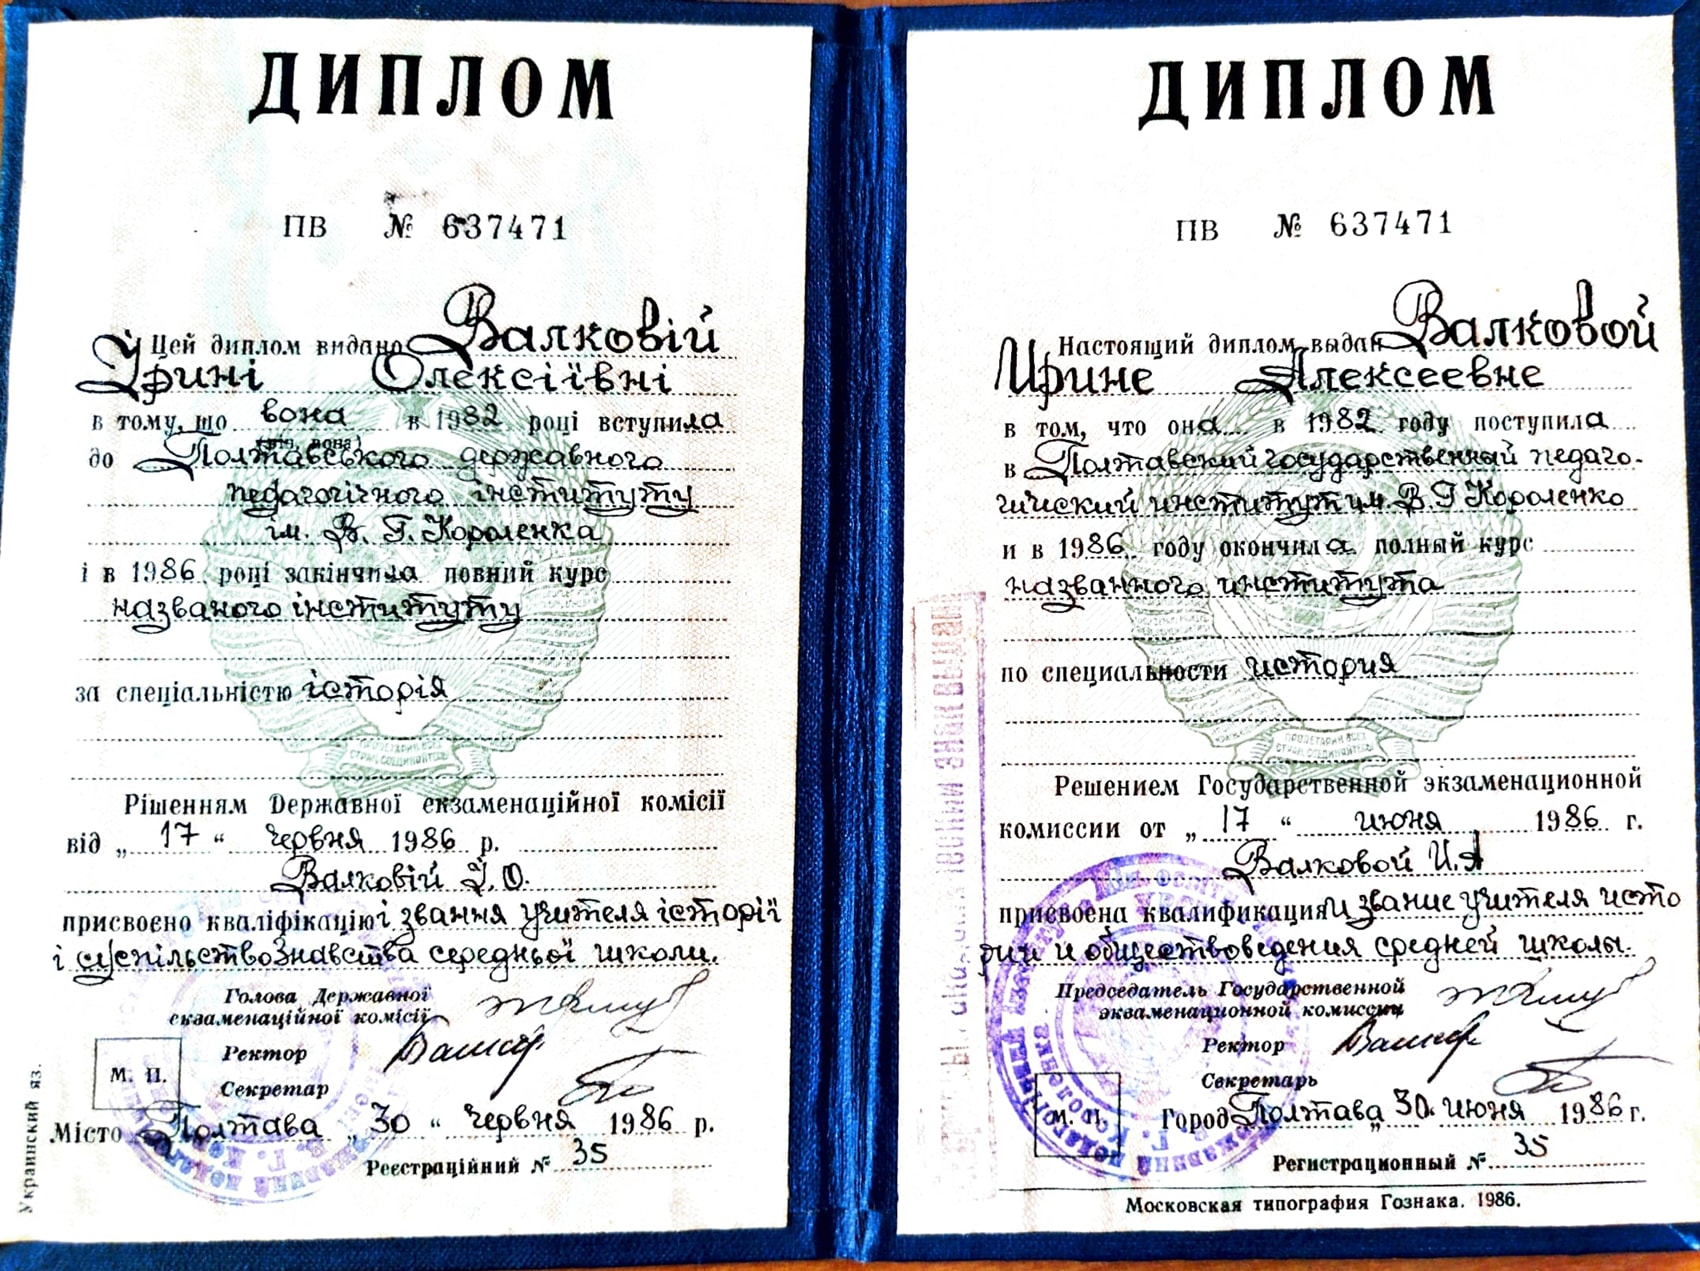 ДИПЛОМ
ПВ № 637471
Цей диплом видано Валковій
Ірині Олексіївні
в тому, що вона в 1982 році вступила
(він, вона)
до Полтавського державного
педагогічного інституту
ім. В. Г. Короленка
і в 1986 році закінчила повний курс
названого інституту
за спеціальністю історія
ПРОЛЕТАРИИ ВСЕХ
СТРАН, СОЕДИНЯЙТЕСЬ!
Рішенням Державної екзаменаційної комісії
від „ 17 “ червня 1986 р.
Валковій І. О.
присвоєно кваліфікацію і звання учителя історії
і суспільствознавства середньої школи.
Голова Державної
екзаменаційної комісії
Ректор
Секретар
М. П.
Місто Полтава „ 30 “ червня 1986 р.
Реєстраційний № 35
Украинский яз.
ДИПЛОМ
ПВ № 637471
Настоящий диплом выдан Валковой
Ирине Алексеевне
в том, что она в 1982 году поступила
в Полтавский государственный педаго-
гический институт им. В. Г. Короленко
и в 1986 году окончила полный курс
названного института
по специальности история
ПРОЛЕТАРИИ ВСЕХ
СТРАН, СОЕДИНЯЙТЕСЬ!
Решением Государственной экзаменационной
комиссии от „ 17 “ июня 1986 г.
Валковой И. А
присвоена квалификация и звание учителя исто
рии и обществоведения средней школы.
Председатель Государственной
экзаменационной комиссии
Ректор
Секретарь
М. П.
Город Полтава „ 30. июня 1986 г.
Регистрационный № 35
Московская типография Гознака. 1986.